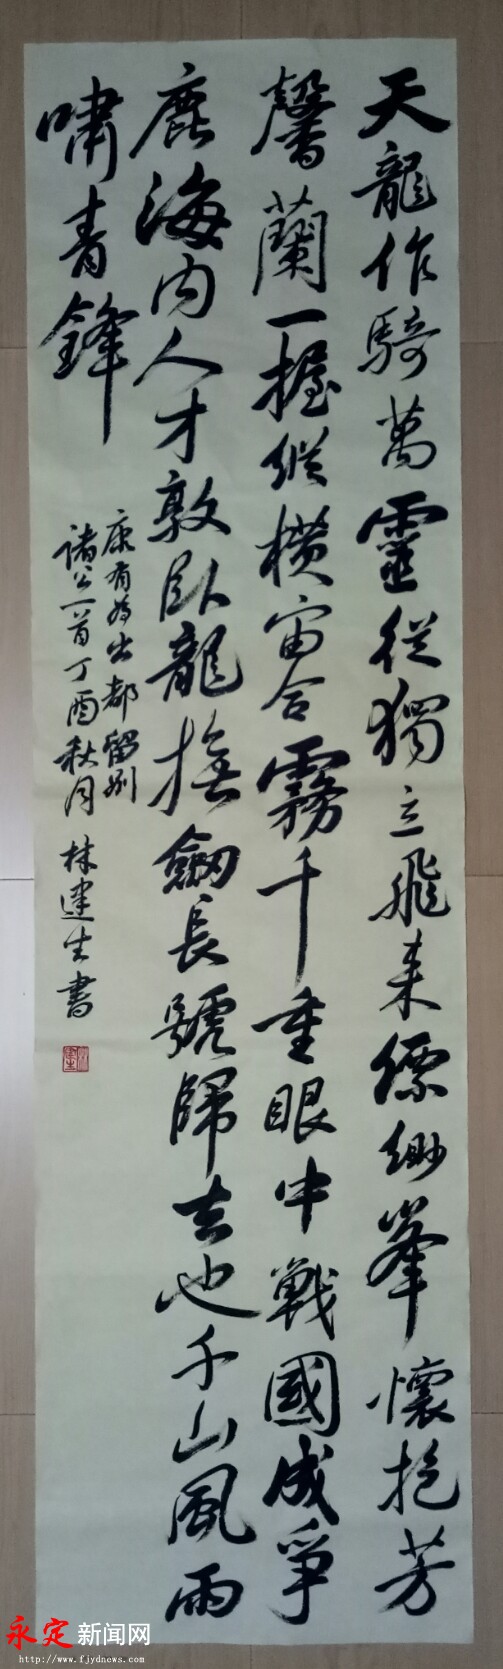 天龍作騎萬靈從獨立飛来縹緲峯懷抱芳
馨蘭一握縱橫宙合霧千重眼中戰國成爭
鹿海内人才敦卧龍撫劒長號歸去也千山風雨
嘯青鋒
康有為出都留别
諸公一首丁酉秋月 林建生書
永定新闻网
http://www.fjydnews.com